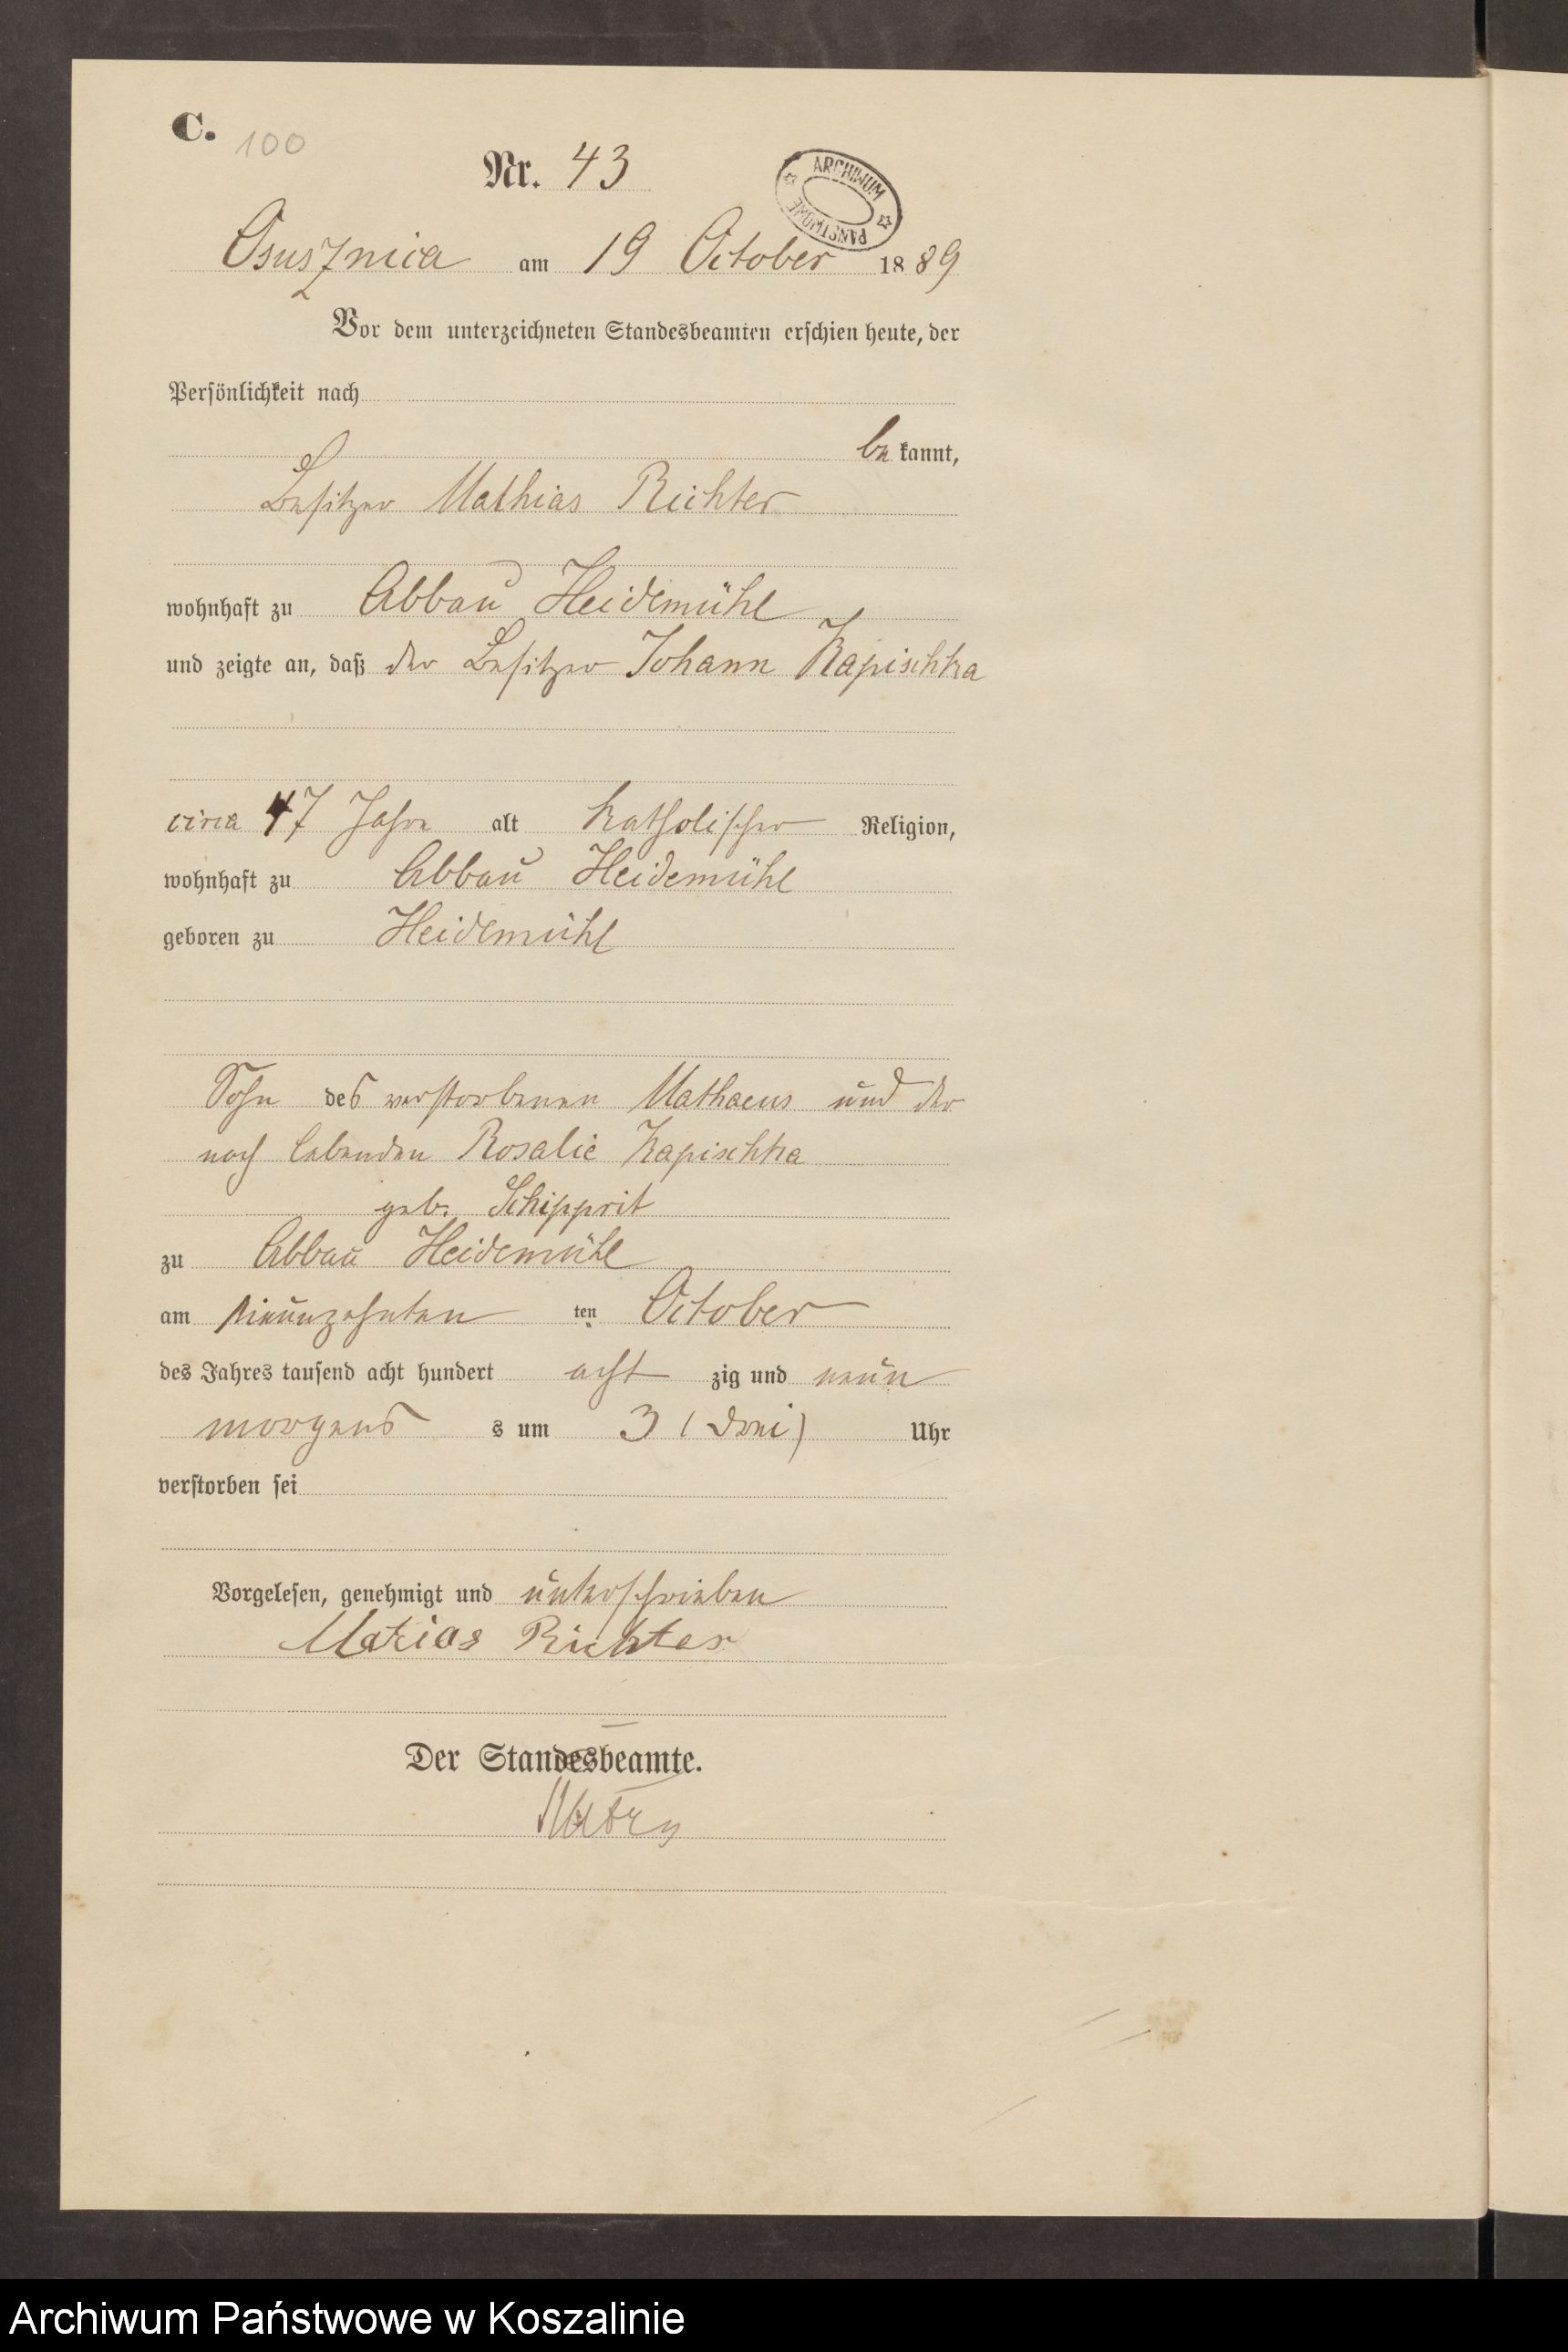 C.
100
Nr. 43
ARCHIWUM PAŃSTWOWE
Osusznica am 19 October 1889
Vor dem unterzeichneten Standesbeamten erschien heute, der
Persönlichkeit nach
be kannt,
Besitzer Mathias Richter
wohnhaft zu Abbau Heidemühl
und zeigte an, daß der Besitzer Johann Kapischka
circa 47 Jahre alt katholischer Religion,
wohnhaft zu Abbau Heidemühl
geboren zu Heidemühl
Sohn des verstorbenen Mathaeus und der
noch lebenden Rosalie Kapischka
geb. Schipprit
zu Abbau Heidemühl
am neunzehnten ten October
des Jahres tausend acht hundert acht zig und neun
morgens s um 3 (drei) Uhr
verstorben sei
Vorgelesen, genehmigt und unterschrieben
Matias Richter
Der Standesbeamte.
Archiwum Państwowe w Koszalinie